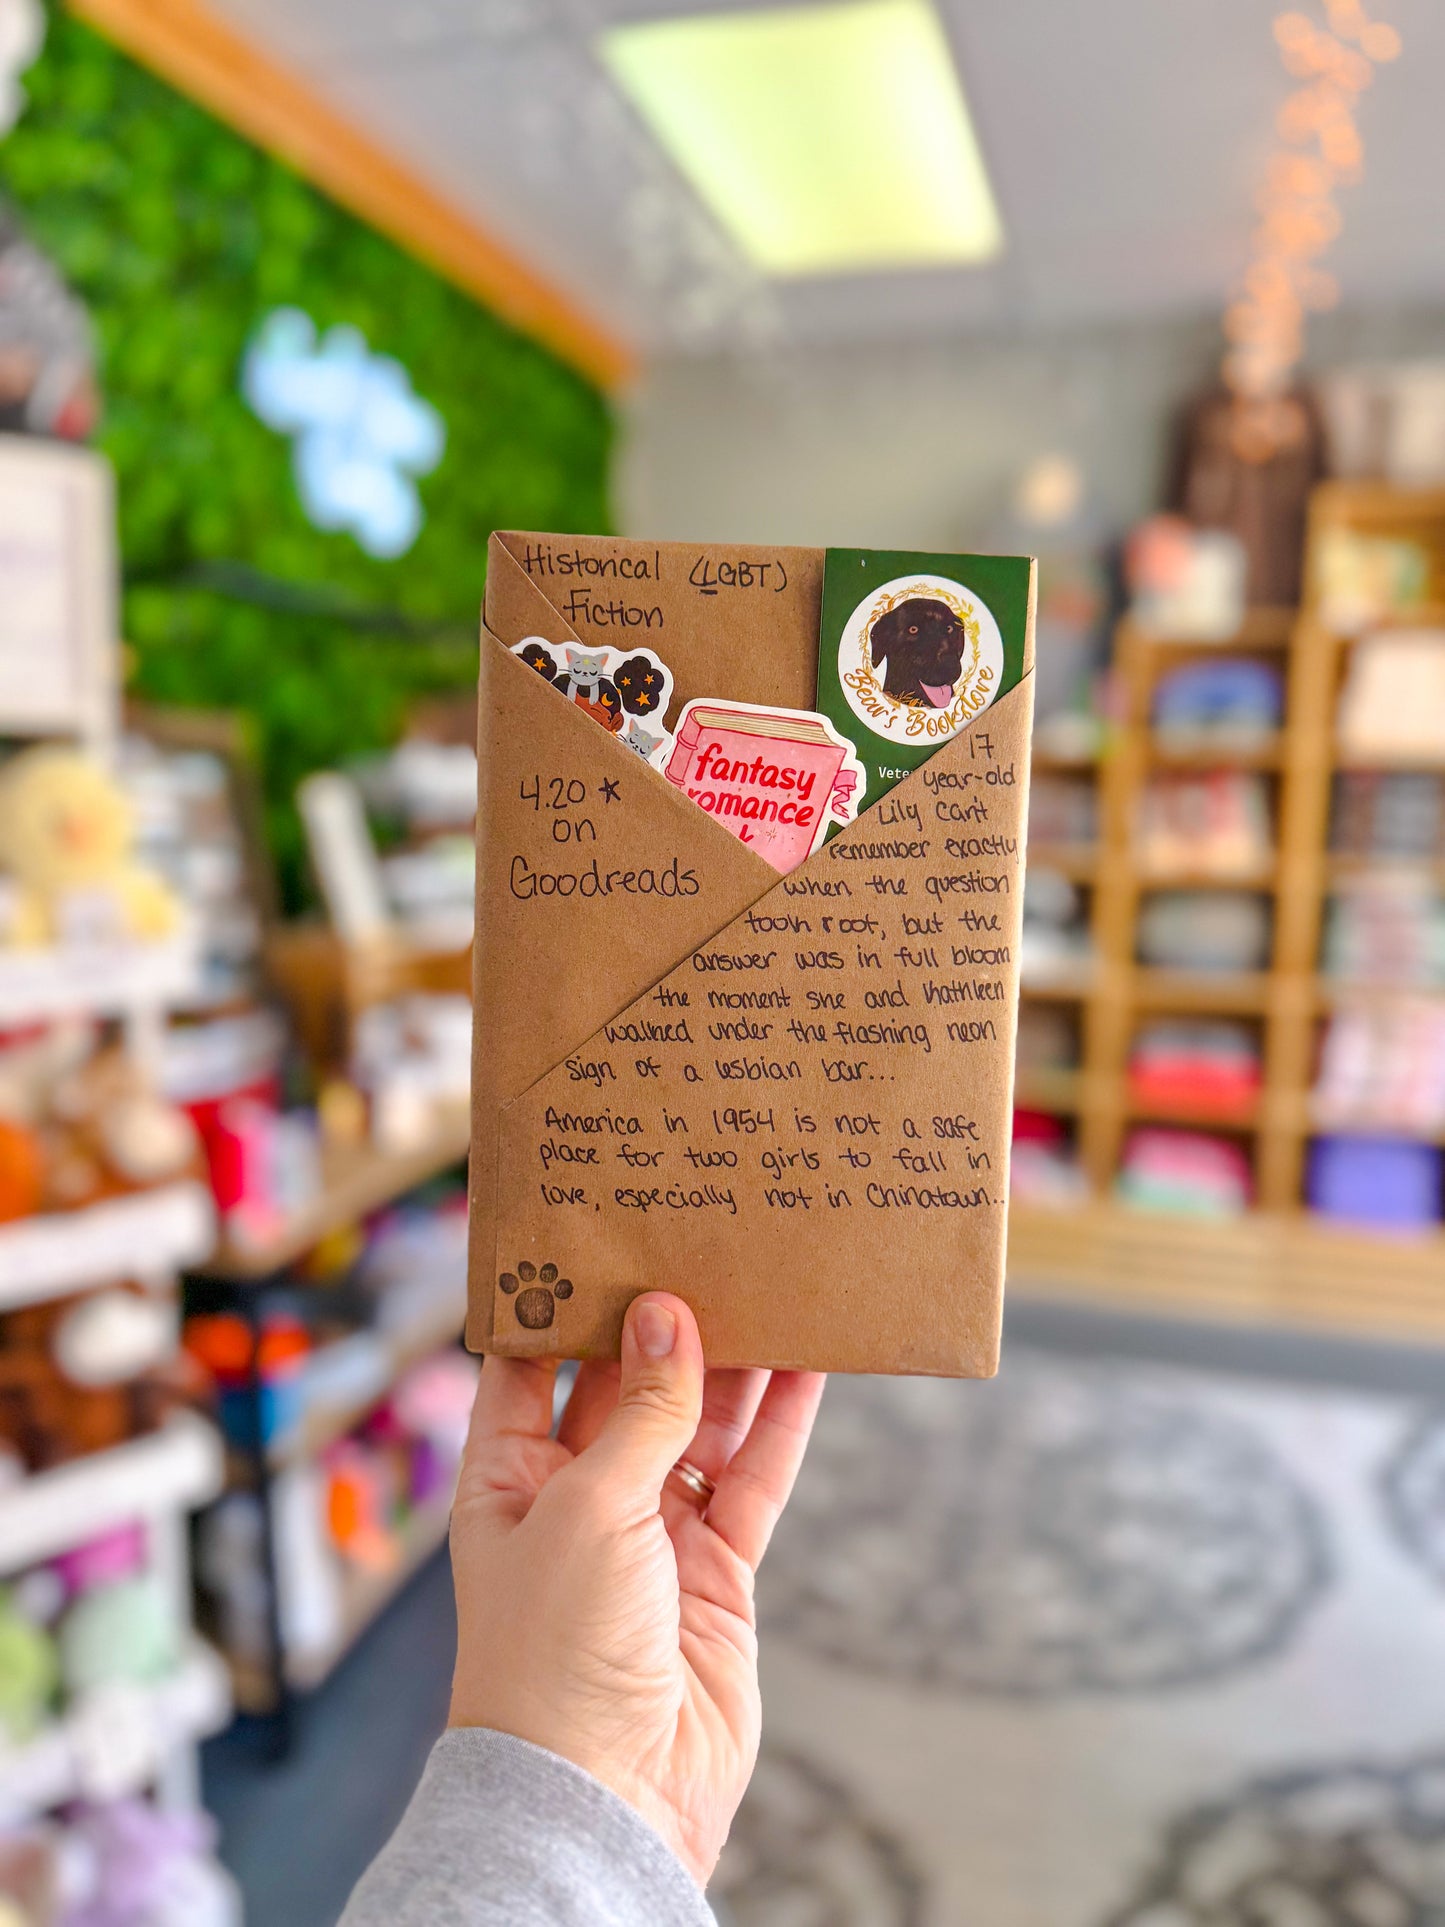 Historical (LGBT)
Fiction
Bear's Bookstore
fantasy
romance
4.20 *
on
Goodreads
17
year-old
Lily can't
remember exactly
when the question
took root, but the
answer was in full bloom
the moment she and Kathleen
walked under the flashing neon
sign of a lesbian bar...
America in 1954 is not a safe
place for two girls to fall in
love, especially not in Chinatown..